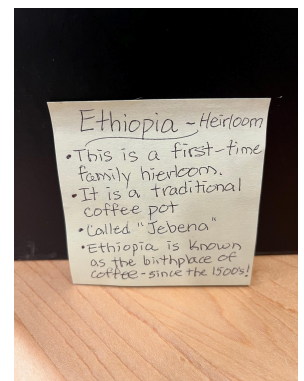 Ethiopia - Heirloom
• This is a first-time
family hierloom.
• It is a traditional
coffee pot
• Called "Jebena"
• Ethiopia is known
as the birthplace of
coffee - since the 1500s!